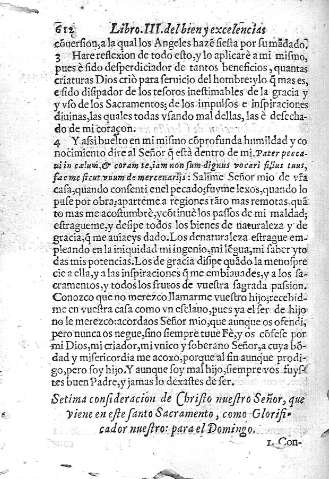 612 Libro. III. del bien y excelencias
cõversion, a la qual los Angeles hazẽ fiesta por su mãdado.
3 Hare reflexion de todo esto, y lo aplicarè a mi mismo,
pues è sido desperdiciador de tantos beneficios, quantas
criaturas Dios criò para servicio del hombre; y lo q̃ mas es,
e sido disipador de los tesoros inestimables de la gracia
y vso de los Sacramentos; de los impulsos e inspiraciones
diuinas, las quales todas vsando mal dellas, las è desecha-
do de mi coraçon.
4 Y asi buelto en mi mismo cõ profunda humildad y co
nocimiento dire al Señor q̃ està dentro de mi, Pater pecca-
vi in cœlum, & coram te, iam non sum dignus vocari filius tuus,
fac me sicut vnum de mercenarijs: Salime Señor mio de vra
casa, quando consenti en el pecado; fuyme lexos, quando lo
puse por obra; aparteme a regiones tãto mas remotas quã
to mas me acostumbrè, y cõtinuè los passos de mi maldad;
estragueme, y desipe todos los bienes de naturaleza y de
gracia, q̃ me auiaeys dado. Los de naturaleza estrague em-
pleando en la iniquidad mi ingenio, mi lẽgua, mi saber y to
das mis potencias. Los de gracia disipe quãdo la menospre
cie a ella, y a las inspiraciones q̃ me embiauades, y a los sa-
cramentos, y todos los frutos de vuestra sagrada passion.
Conozco que no merezco llamarme vuestro hijo; recebid-
me en vuestra casa como vn esclauo, pues ya el ser de hijo
no le merezco: acordaos Señor mio, que aunque os ofendi,
pero nunca os negue, sino siempre tuue Fè, y os cõfese por
mi Dios, mi criador, mi vnico y soberano Señor, a cuya bõ-
dad y misericordia me acoxo, porque al fin aunque prodi-
go, pero soy hijo. Y aunque soy mal hijo, siempre vos fuys-
tes buen Padre, y jamas lo dexastes de ser.
Setima consideracion de Christo nuestro Señor, que
viene en este santo Sacramento, como Glorifi-
cador nuestro: para el Domingo.
1. Con-